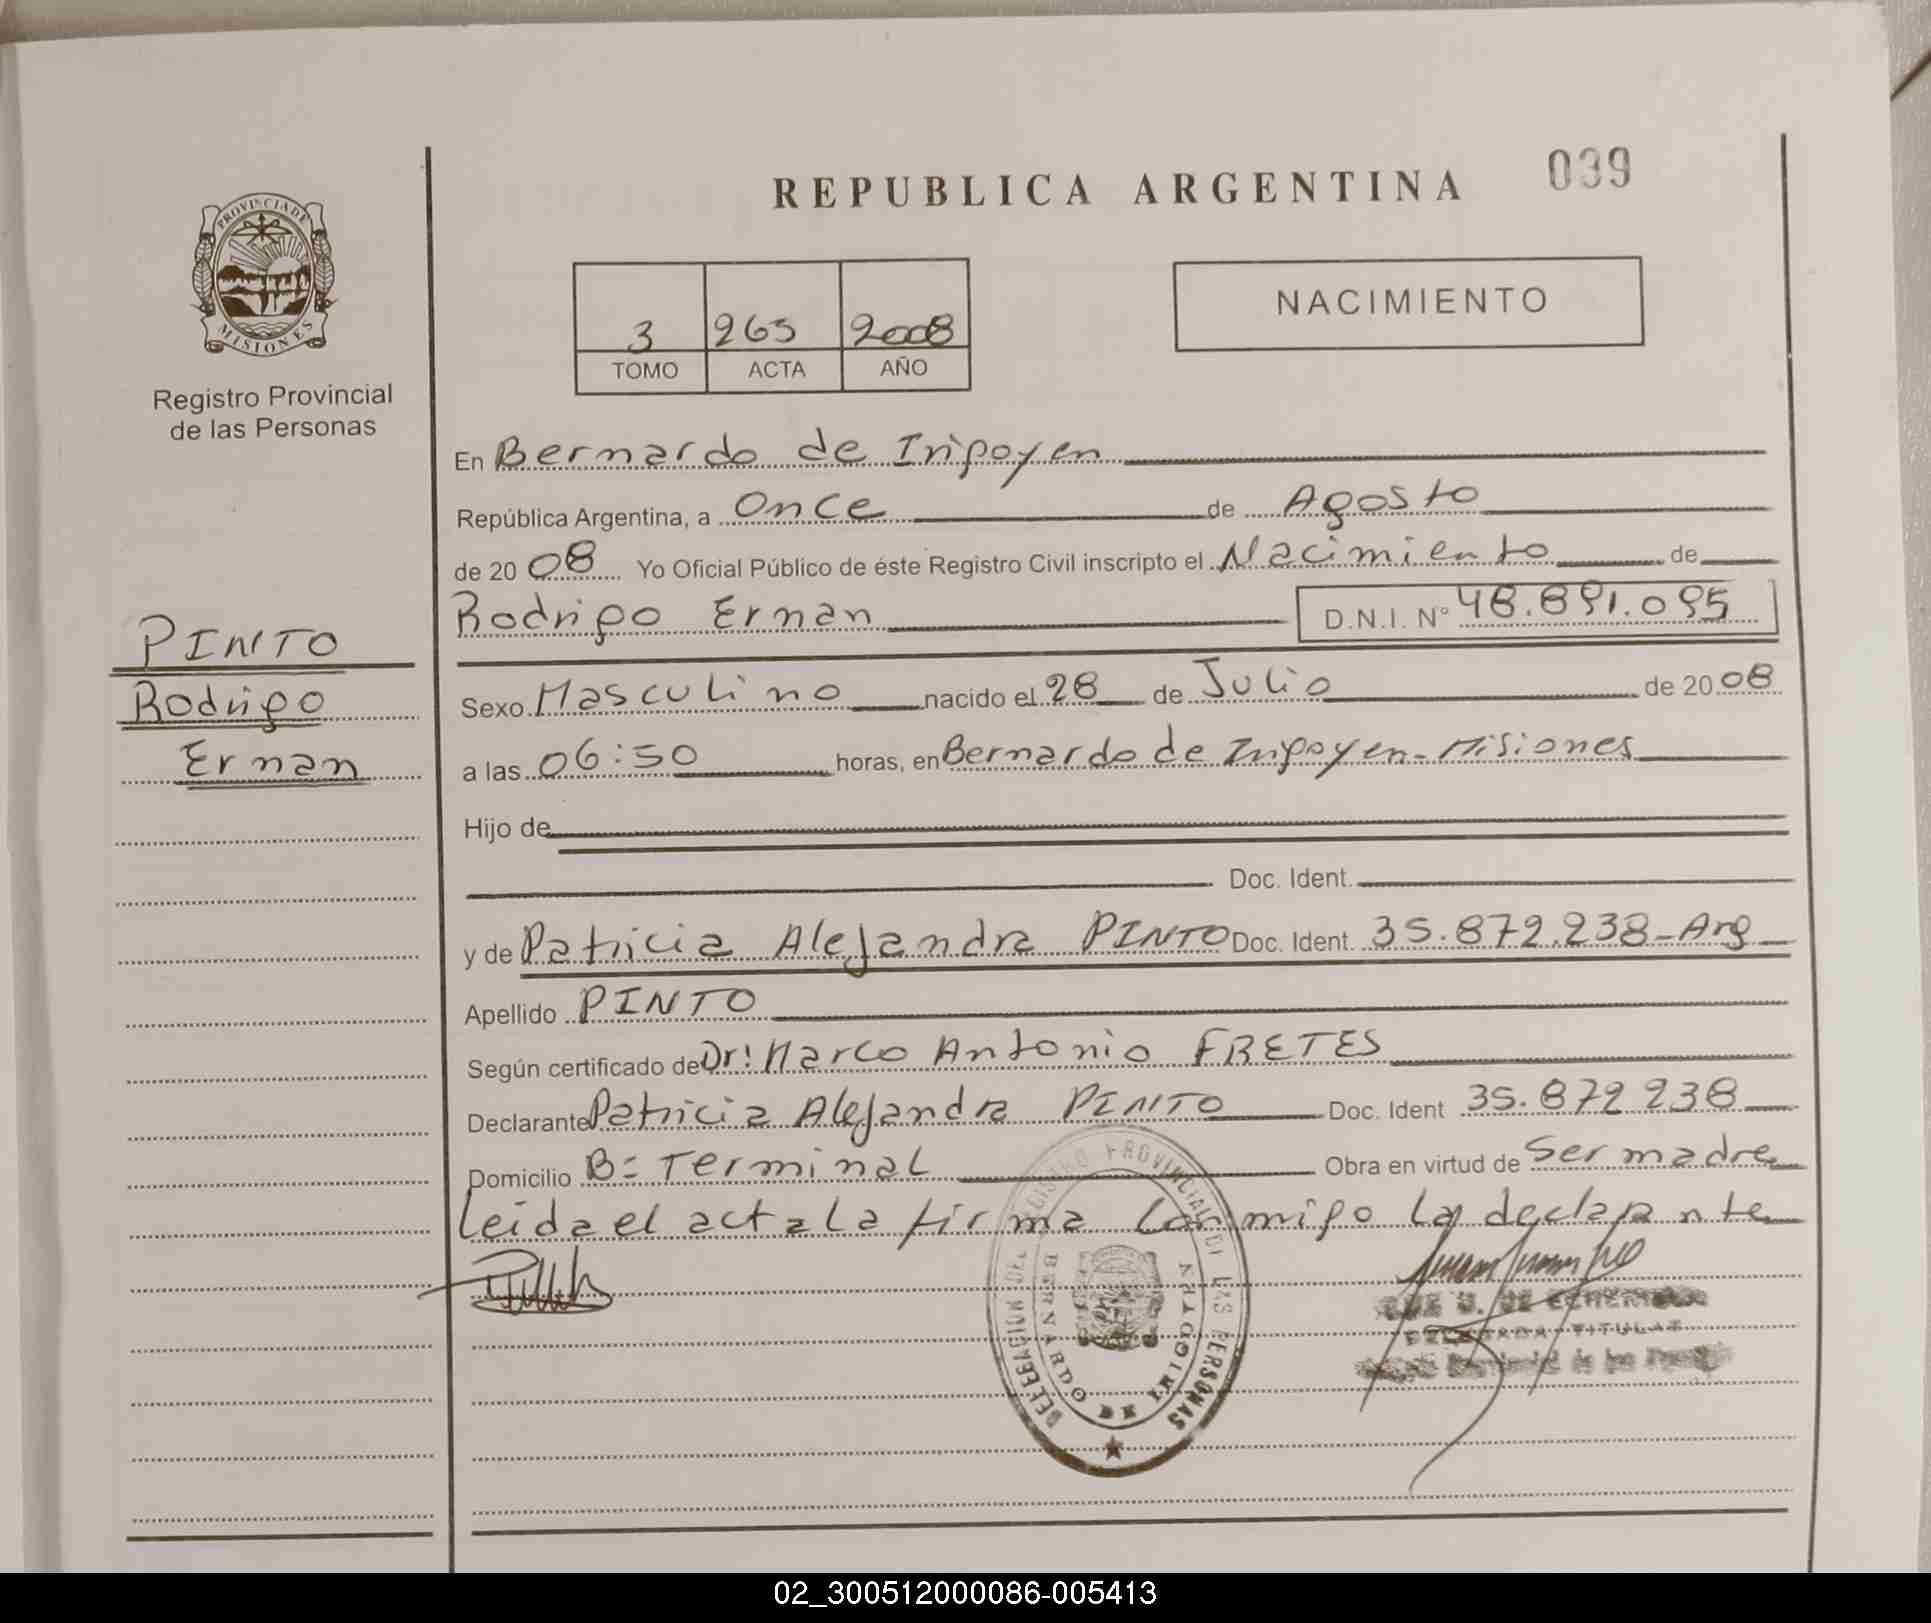 REPUBLICA ARGENTINA 039
PROVINCIA DE
MISIONES
Registro Provincial
de las Personas
NACIMIENTO
3 265 2008
TOMO ACTA AÑO
En Bernardo de Irigoyen
República Argentina, a Once de Agosto
de 2008 Yo Oficial Público de éste Registro Civil inscripto el Nacimiento de
Rodrigo Ernan D.N.I. Nº 48.891.095
PINTO
Rodrigo
Ernan
Sexo Masculino nacido el 28 de Julio de 2008
a las 06:50 horas, en Bernardo de Irigoyen - Misiones
Hijo de
Doc. Ident.
y de Patricia Alejandra PINTO Doc. Ident. 35.872.238-Arg
Apellido PINTO
Según certificado de Dr: Marco Antonio FRETES
Declarante Patricia Alejandra PINTO Doc. Ident 35.872.238
Domicilio Bº Terminal Obra en virtud de Ser madre
Leida el acta la firma conmigo la declarante
DELEGACION DEL REGISTRO PROVINCIAL DE LAS PERSONAS
BERNARDO DE IRIGOYEN
DELEGADA TITULAR
Provincial de las
02_300512000086-005413